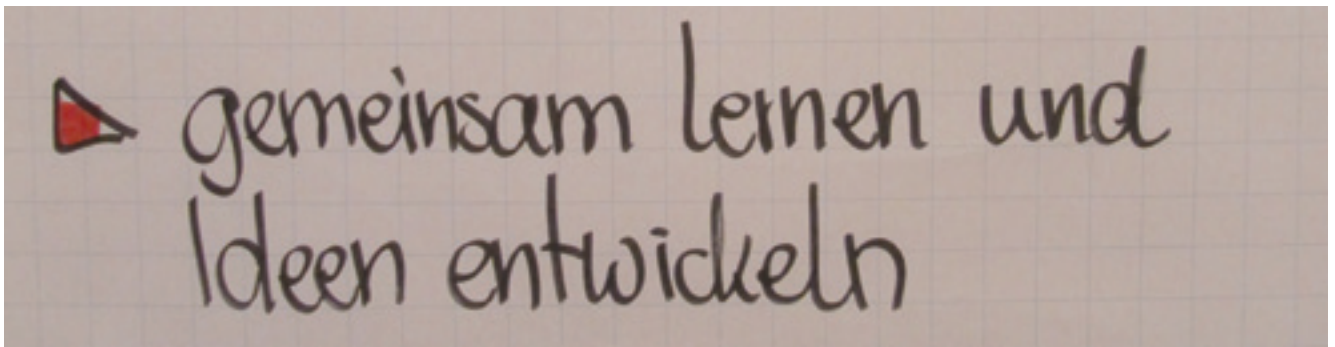 gemeinsam lernen und
Ideen entwickeln